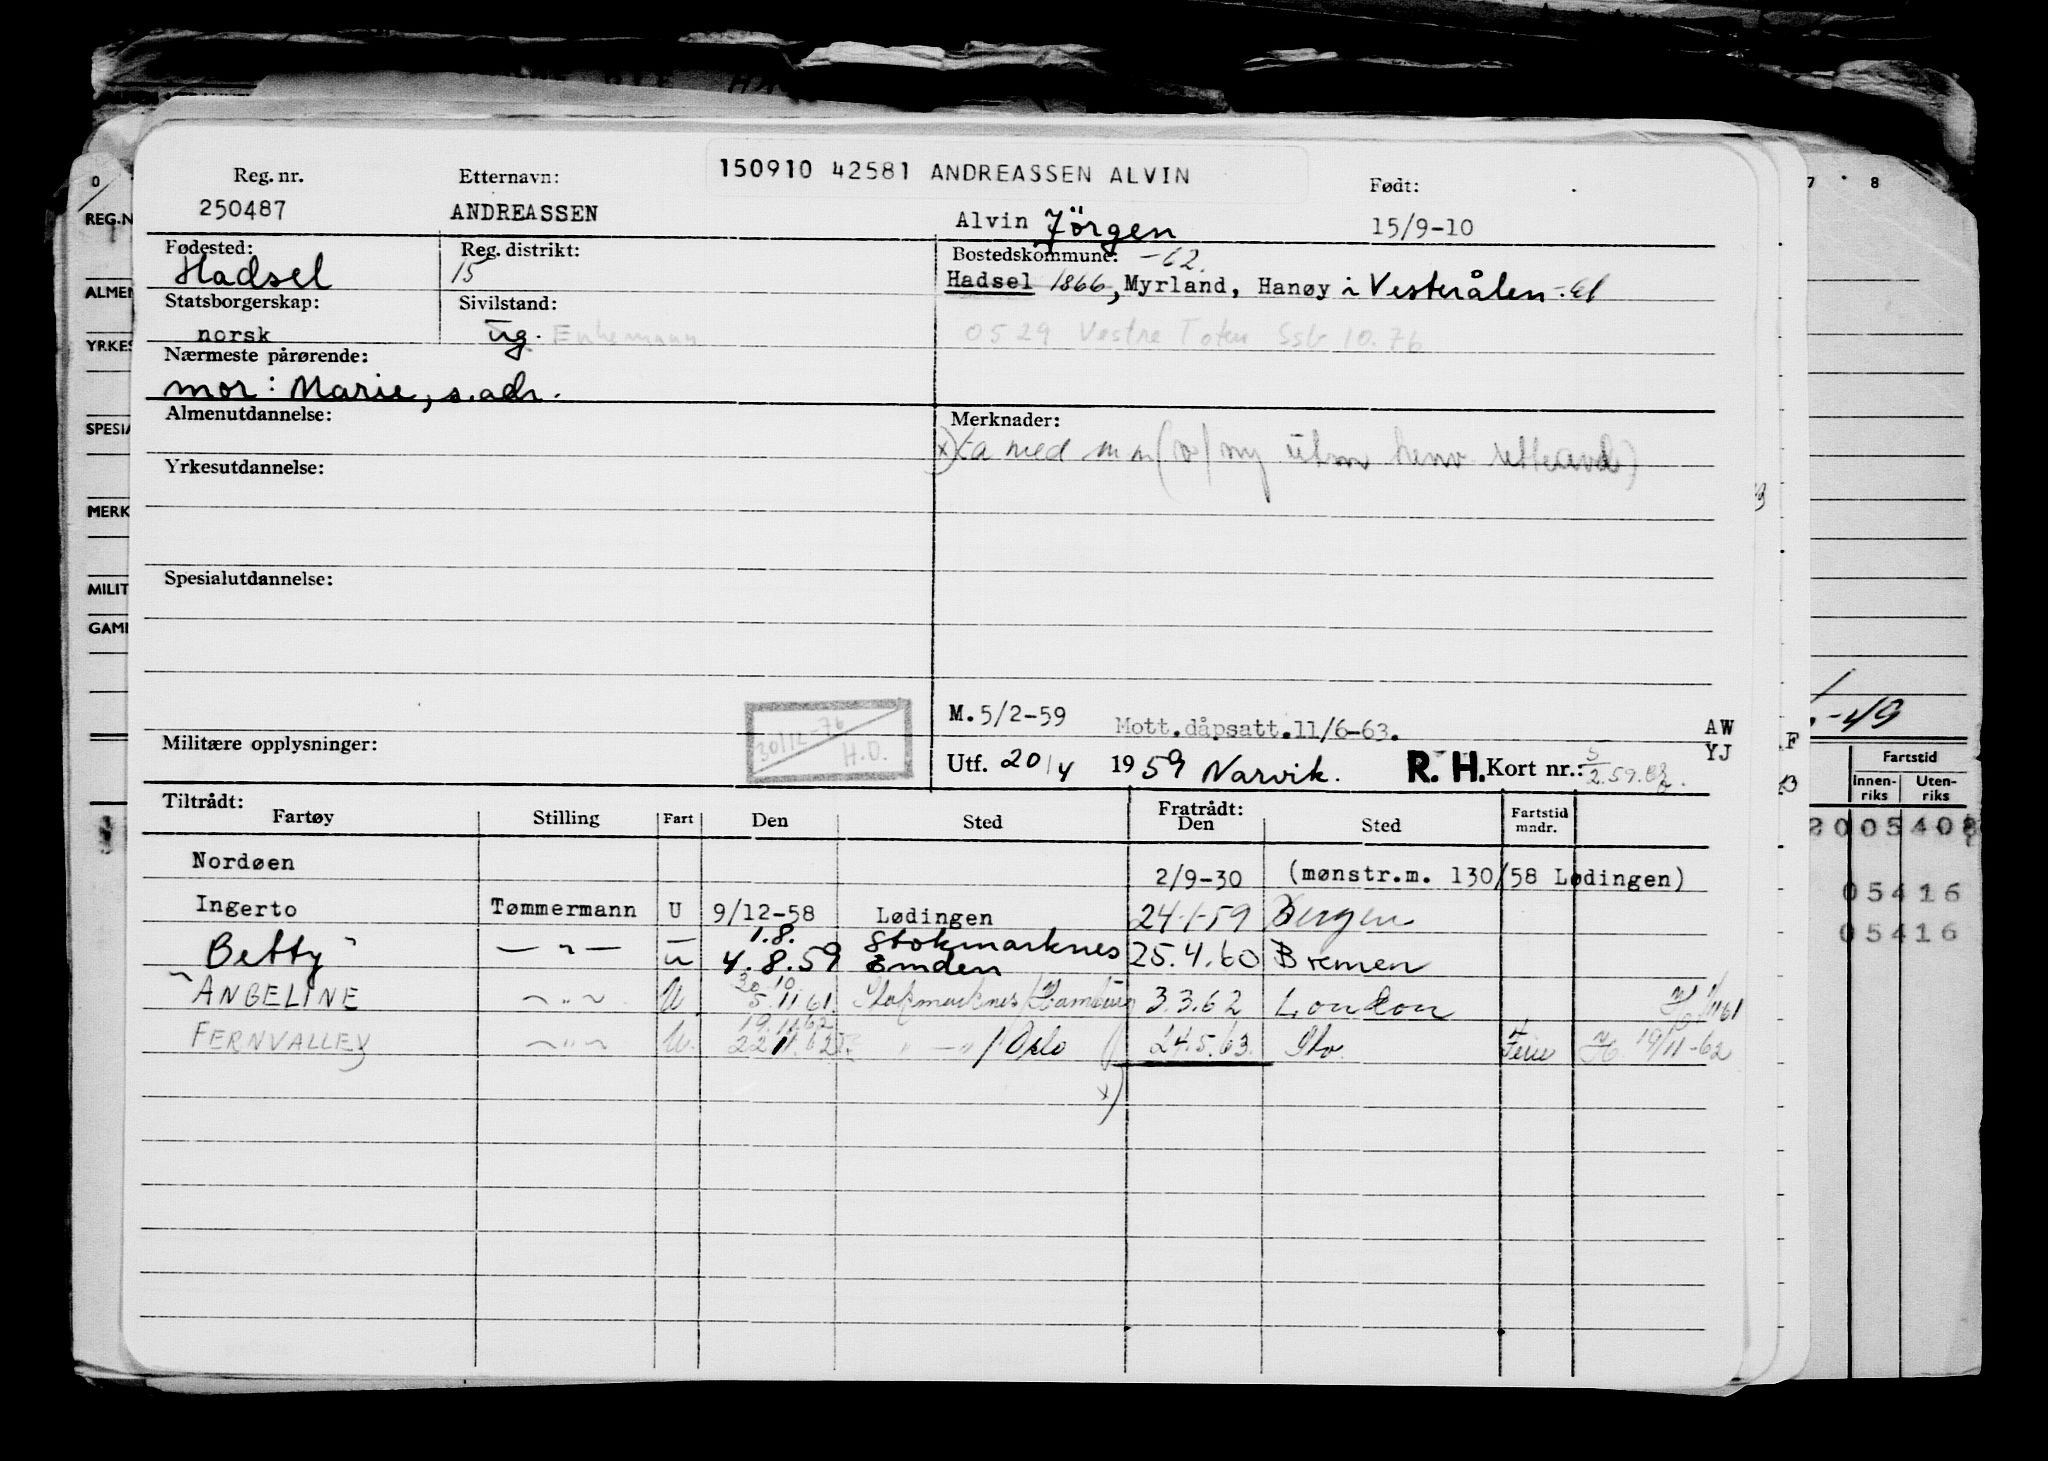 150910 42581 ANDREASSEN ALVIN
Reg. nr. Etternavn: Født:
250487 ANDREASSEN Alvin Jörgen 15/9-10
Fødested: Reg. distrikt: Bostedskommune: -62.
Hadsel 15 Hadsel 1866, Myrland, Hanøy i Vesterålen
Statsborgerskap: Sivilstand:
norsk ug. Enkemann 0529 Vestre Toten Ssb 10.76
Nærmeste pårørende:
mor: Marie, s.adr.
Almenutdannelse: Merknader:
x) ta med m m
Yrkesutdannelse:
Spesialutdannelse:
M. 5/2-59 Mott.dåpsatt.11/6-63. AW
Militære opplysninger: 30/12-76 H.O. YJ
Utf. 20/4 1959 Narvik. R. H. Kort nr.: 5/2.59.
Tiltrådt: Fratrådt:
Fartøy Stilling Fart Den Sted Den Sted Fartstid mndr.
Nordøen 2/9-30 (mønstr.m. 130/58 Lødingen)
Ingerto Tømmermann U 9/12-58 Lødingen 24-1-59 Bergen
1.8. Stokmarknes
Betty — " — u 4.8.59 Emden 25.4.60 Bremen
30.10
ANGELINE — " — U 5.11.61. Stokmarknes/Hamburg 3.3.62 London
19.11.62
FERNVALLEY — " — U. 22.11.62 " — " / Oslo 24.5.63. Sto. Ferie H 19/11-62
x)
REG.N
ALMEN
YRKES
SPESIA
MERK
MILIT
GAMI
7 8
-49
Fartstid
Innen-riks Uten-riks
05416
05416